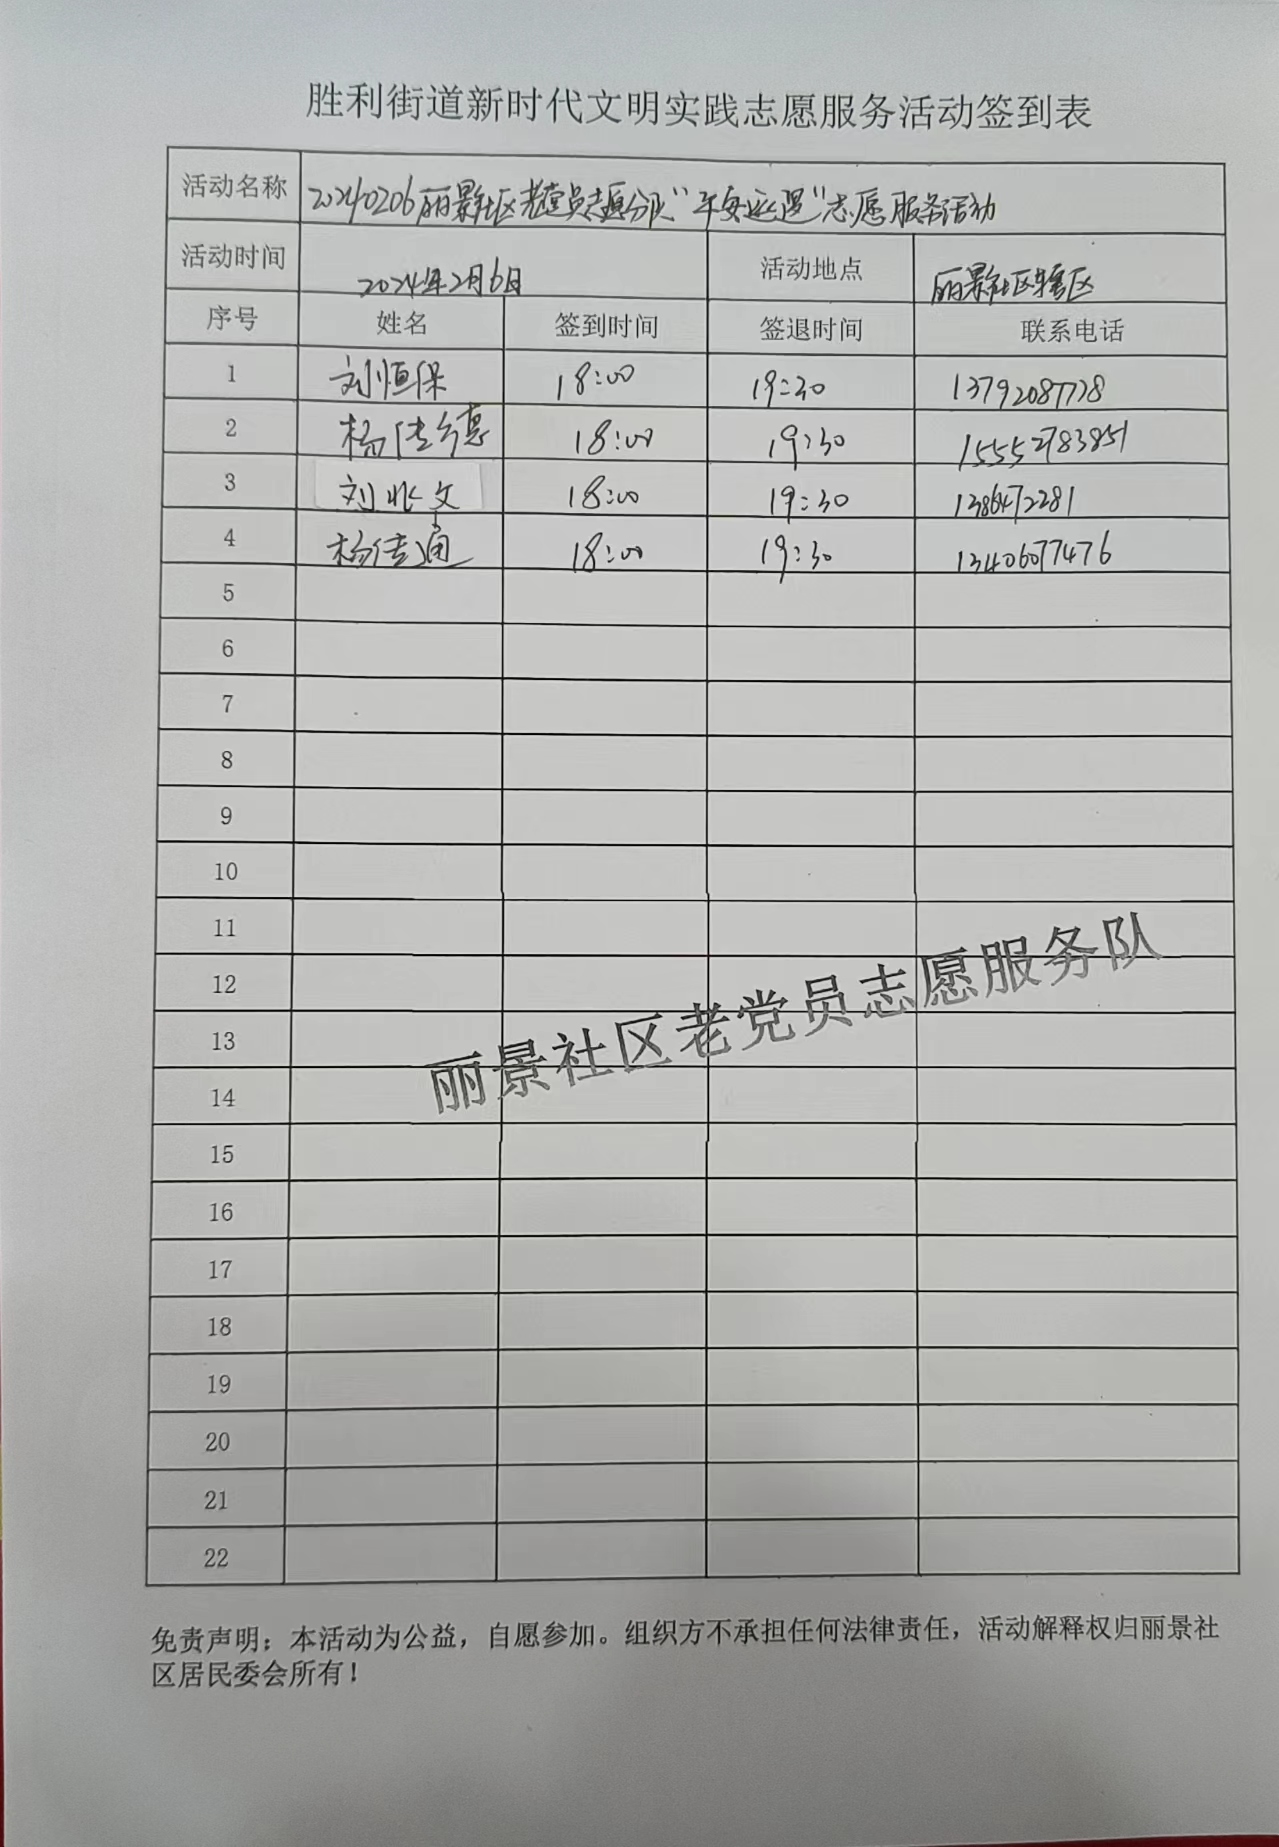 胜利街道新时代文明实践志愿服务活动签到表
活动名称 20240206丽景社区老党员志愿分队“平安巡逻”志愿服务活动
活动时间 2024年2月6日 活动地点 丽景社区辖区
序号 姓名 签到时间 签退时间 联系电话
1 刘恒保 18:00 19:30 13792087728
2 杨传德 18:00 19:30 15552783851
3 刘兆文 18:00 19:30
4 杨传通 18:00 19:30 13406077476
5
6
7
8
9
10
11
12
13
14
15
16
17
18
19
20
21
22
丽景社区老党员志愿服务队
免责声明：本活动为公益，自愿参加。组织方不承担任何法律责任，活动解释权归丽景社
区居民委会所有！